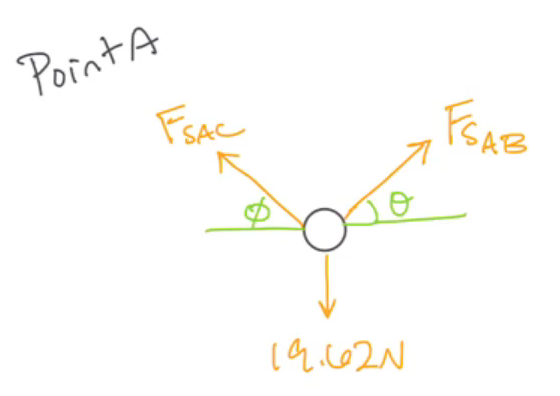 Point A
F_SAC
F_SAB
ϕ
θ
19.62N